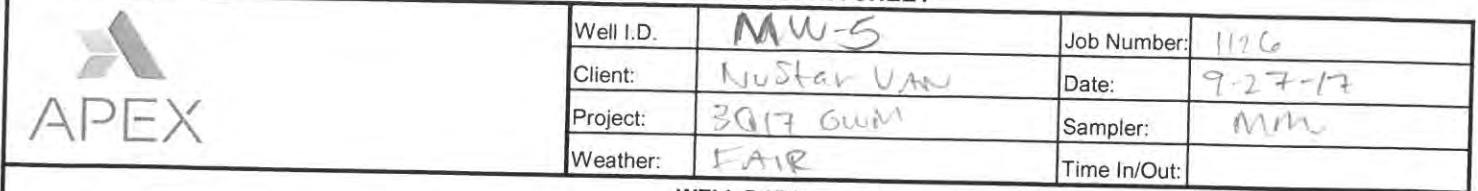 APEX
Well I.D. MW-5 Job Number: 1126
Client: NuStar VAN Date: 9-27-17
Project: 3Q17 GWM Sampler: MM
Weather: FAIR Time In/Out: